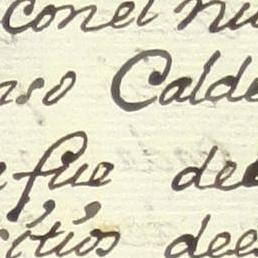 conel nu
nso Calde
fue de
itios dee